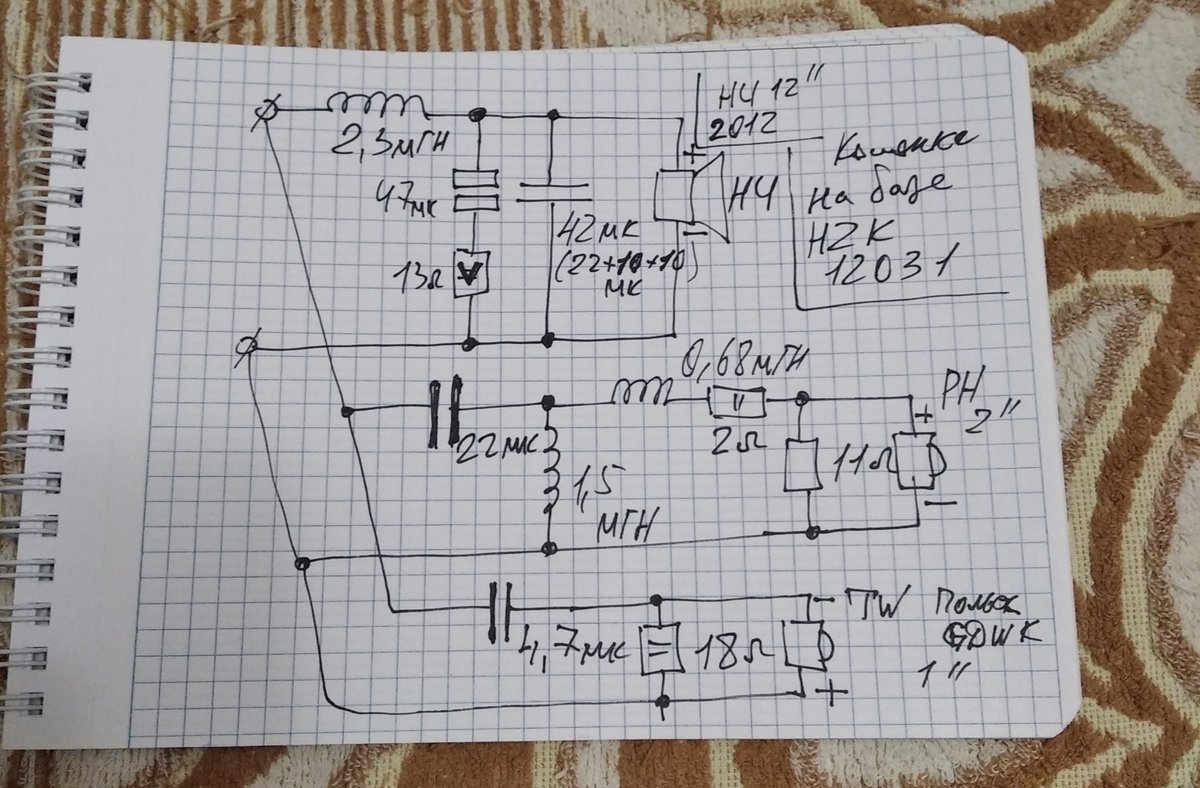 2,3мГН
47мк
13Ω
42мк
(22+10+10)
мк
+
НЧ
−
НЧ 12"
2012
на базе
HZK
12031
22мк
1,5
мГН
0,68мГН
2Ω
11Ω
+
−
PH
2"
4,7мк
18Ω
−
+
TW Польск
GDWK
1"